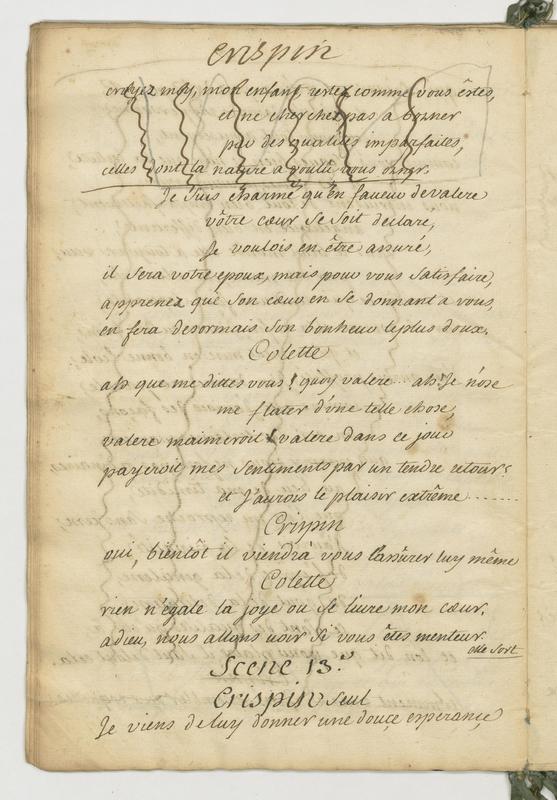 Crispin
croyez moy, mon enfant, restez comme vous êtes,
et ne cherchez pas a borner
par des qualités imparfaites,
celles dont la nature a voulu vous orner.
Je suis charmé qu'en faveur de valere
vôtre cœur se soit declaré,
Je voulois en être assuré,
il sera votre epoux, mais pour vous satisfaire,
apprenez que son cœur en se donnant a vous,
en fera desormais son bonheur le plus doux.
Colette
ah que me dittes vous! quoy valere... ah! Je n'ose
me flater d'une telle chose,
valere m'aimeroit! valere dans ce jour
payeroit mes sentiments par un tendre retour!
et J'aurois le plaisir extrême .......
Crispin
oui, bientôt il viendra vous l'assurer luy même
Colette
rien n'égale la joye ou se livre mon cœur.
adieu, nous allons voir si vous êtes menteur.
elle sort
Scene 13.e
Crispin seul
Je viens de luy donner une douce esperance